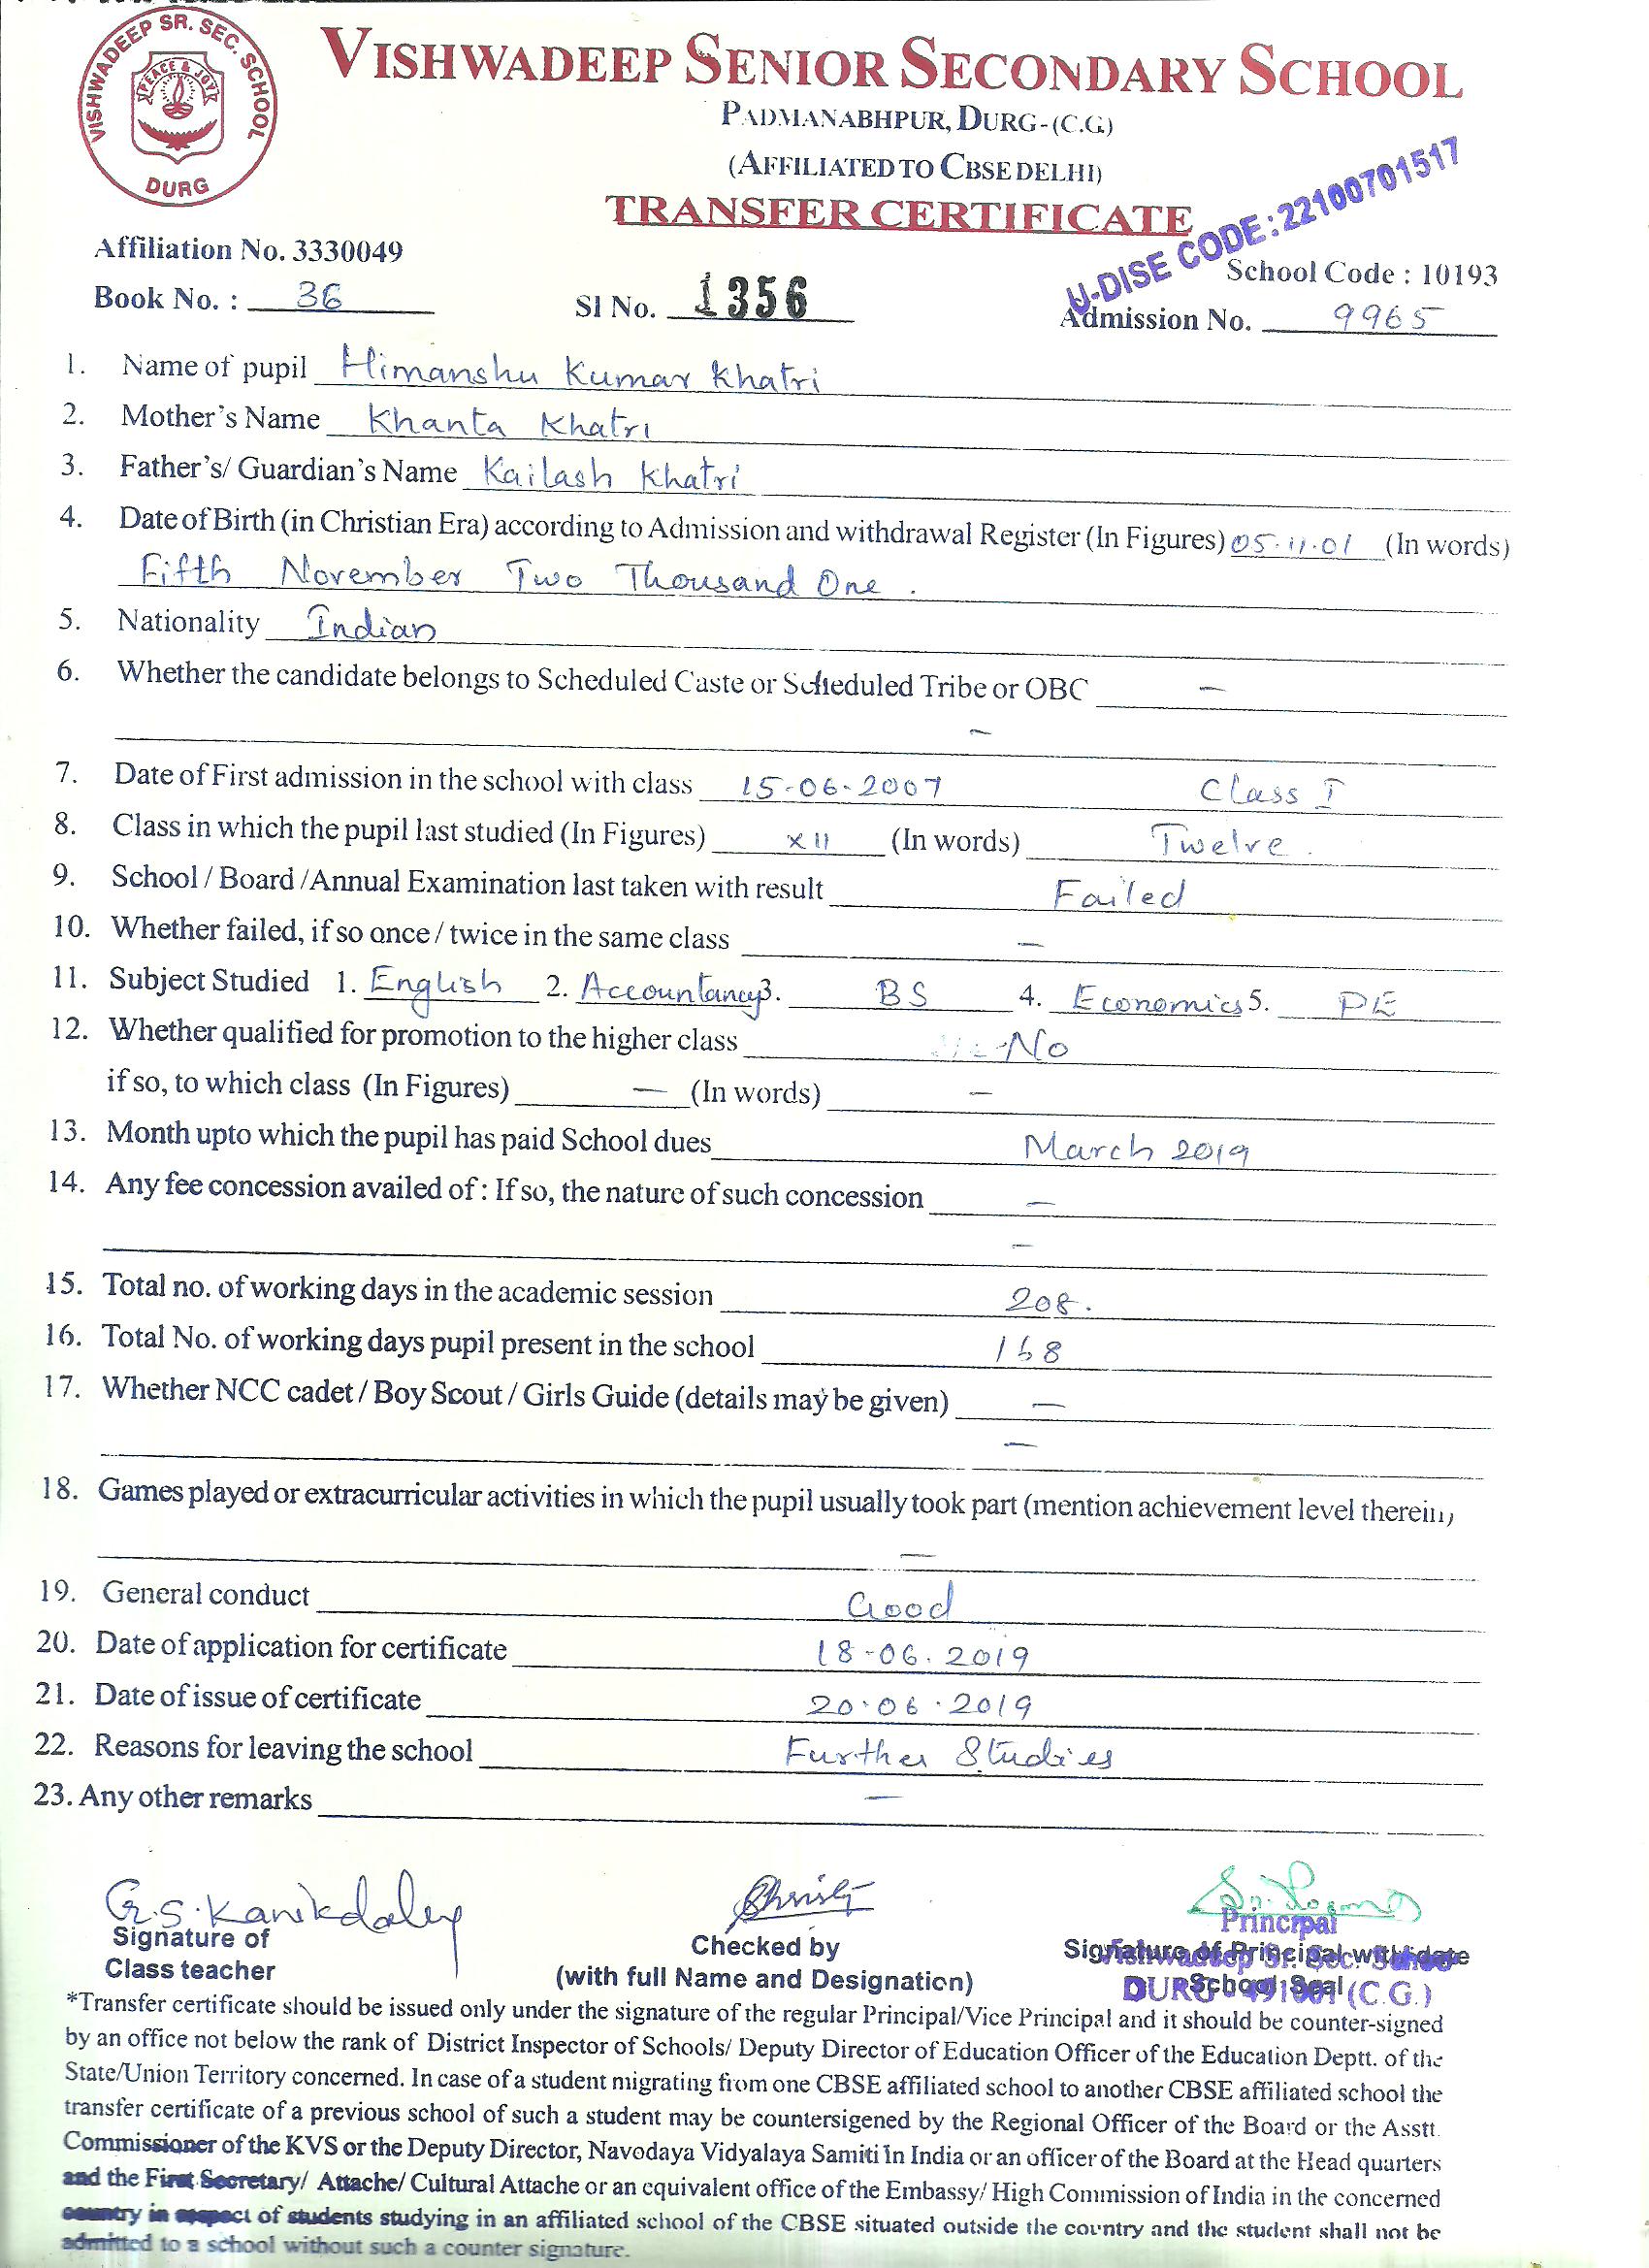 VISHWADEEP SR. SEC. SCHOOL
PEACE & JOY
DURG
VISHWADEEP SENIOR SECONDARY SCHOOL
PADMANABHPUR, DURG-(C.G.)
(AFFILIATED TO CBSE DELHI)
TRANSFER CERTIFICATE
U-DISE CODE:22100701517
Affiliation No. 3330049
School Code : 10193
Book No. : 36 Sl No. 1356 Admission No. 9965
1. Name of pupil Himanshu Kumar Khatri
2. Mother's Name Khanta Khatri
3. Father's/ Guardian's Name Kailash Khatri
4. Date of Birth (in Christian Era) according to Admission and withdrawal Register (In Figures) 05.11.01 (In words)
Fifth November Two Thousand One.
5. Nationality Indian
6. Whether the candidate belongs to Scheduled Caste or Scheduled Tribe or OBC —
—
7. Date of First admission in the school with class 15-06-2007 Class I
8. Class in which the pupil last studied (In Figures) XII (In words) Twelve.
9. School / Board /Annual Examination last taken with result Failed
10. Whether failed, if so once / twice in the same class —
11. Subject Studied 1. English 2. Accountancy 3. BS 4. Economics 5. PE
12. Whether qualified for promotion to the higher class No
if so, to which class (In Figures) — (In words) —
13. Month upto which the pupil has paid School dues March 2019
14. Any fee concession availed of : If so, the nature of such concession —
—
15. Total no. of working days in the academic session 208.
16. Total No. of working days pupil present in the school 168
17. Whether NCC cadet / Boy Scout / Girls Guide (details may be given) —
—
18. Games played or extracurricular activities in which the pupil usually took part (mention achievement level therein)
—
19. General conduct Good
20. Date of application for certificate 18-06.2019
21. Date of issue of certificate 20.06.2019
22. Reasons for leaving the school Further Studies
23. Any other remarks —
G.S. Kanikdaley
Principal
Signature of Checked by Signature of Principal with date
Vishwadeep Sr. Sec. School
Class teacher (with full Name and Designation) School Seal
DURG 491001 (C.G.)
*Transfer certificate should be issued only under the signature of the regular Principal/Vice Principal and it should be counter-signed
by an office not below the rank of District Inspector of Schools/ Deputy Director of Education Officer of the Education Deptt. of the
State/Union Territory concerned. In case of a student migrating from one CBSE affiliated school to another CBSE affiliated school the
transfer certificate of a previous school of such a student may be countersigened by the Regional Officer of the Board or the Asstt.
Commissioner of the KVS or the Deputy Director, Navodaya Vidyalaya Samiti in India or an officer of the Board at the Head quarters
and the First Secretary/ Attache/ Cultural Attache or an equivalent office of the Embassy/ High Commission of India in the concerned
country in respect of students studying in an affiliated school of the CBSE situated outside the country and the student shall not be
admitted to a school without such a counter signature.